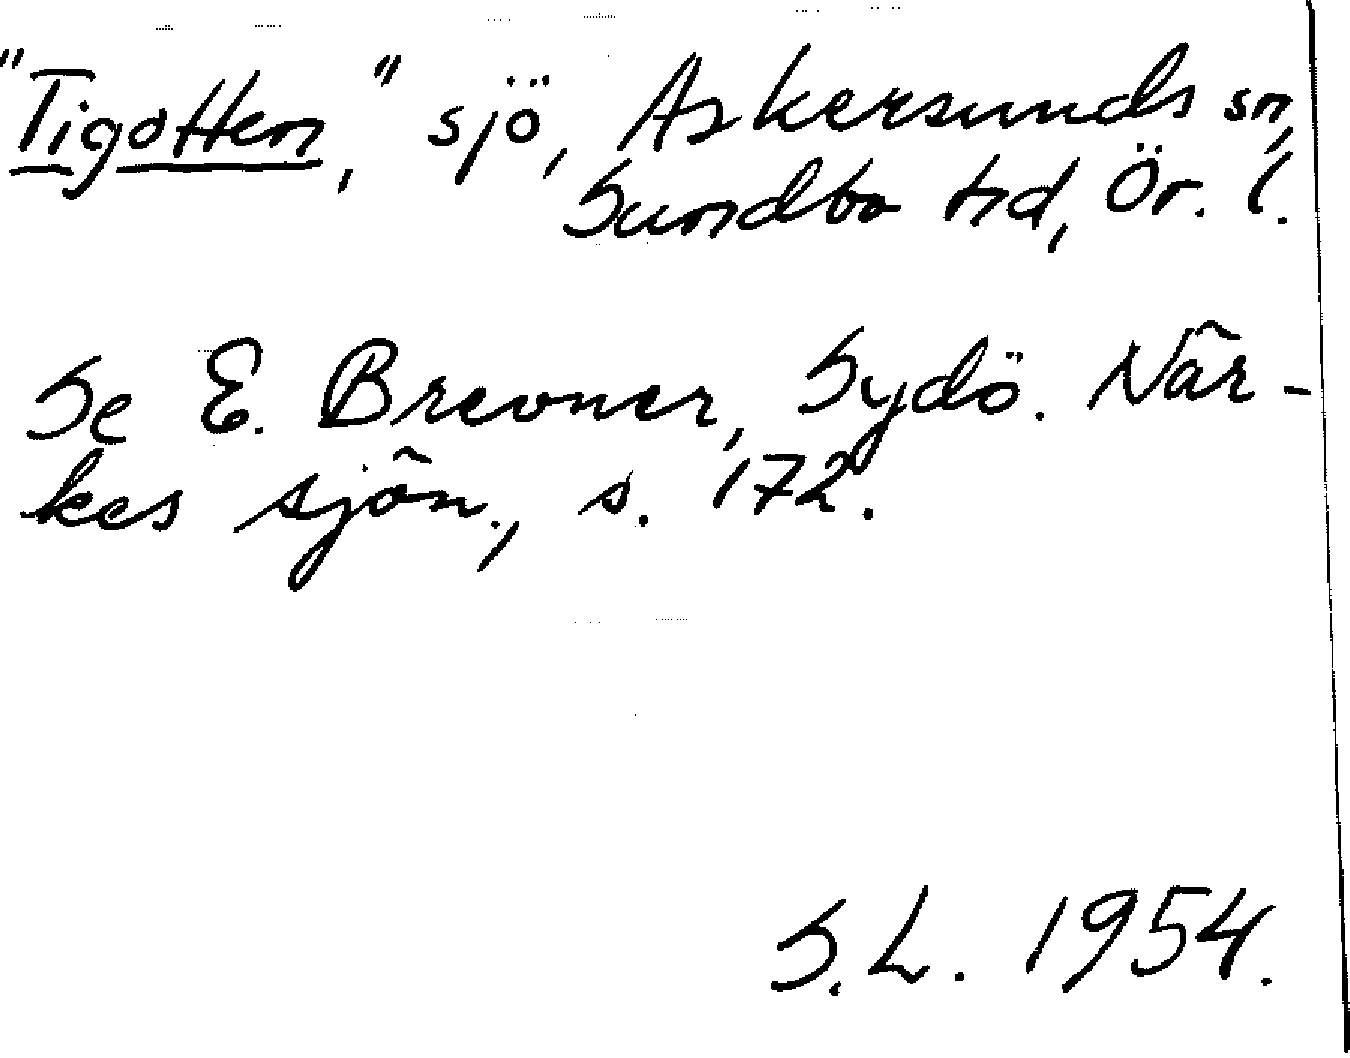 "Tigotten," sjö, Askersunds sn,
Sundbo hd, Ör. l.
Se E. Brevner, Sydö. När-
kes sjön., s. 172.
S.L. 1954.